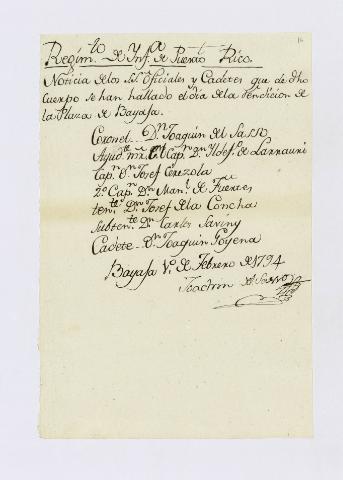 Regim.to de Inf.a de Puerto Rico.
Noticia de los S.res Oficiales y Cadetes que de dho
Cuerpo se han hallado el dia de la rendicion de
la Plaza de Bayaja.
Coronel D.n Joaquin del Sasso
Ayud.te m.r Cap.n D.n Yldef.o de Larrauri
Cap.n D.n Josef Cerezola
2º Cap.n D.n Man.l de Fuertes
ten.te D.n Josef de la Concha
Subten.te D.n Carlos Saviny
Cadete D.n Joaquin Goyena
Bayaja 1º de Febrero de 1794
Joachin del Sasso